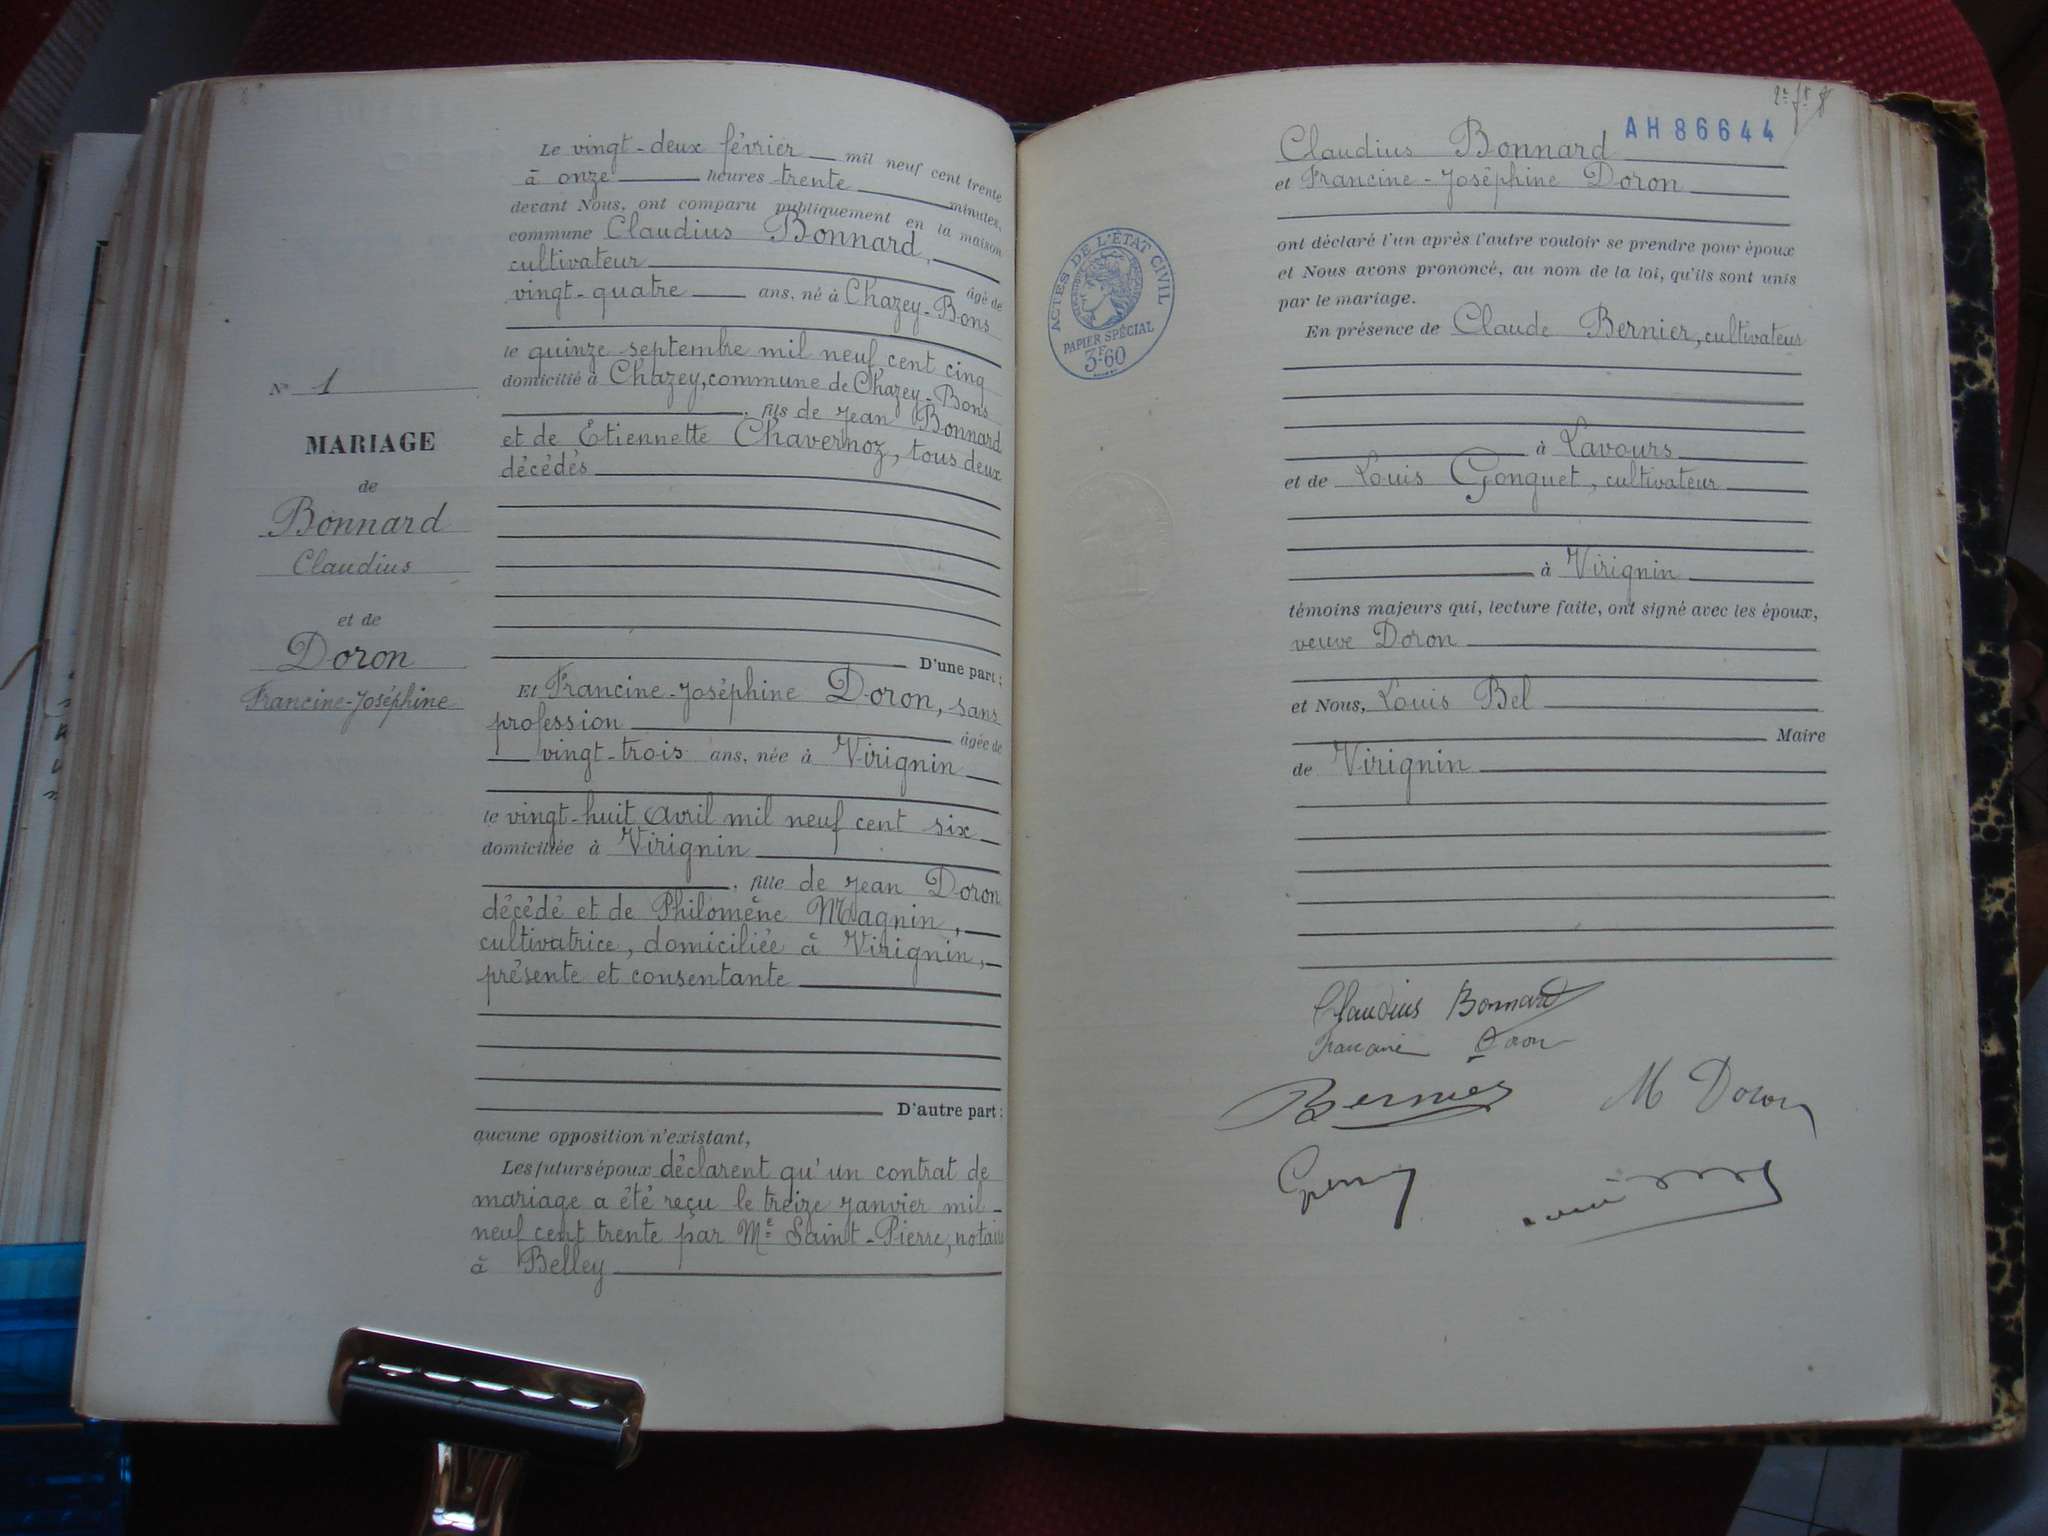 Le vingt-deux février mil neuf cent trente
à onze heures trente minutes,
devant Nous, ont comparu publiquement en la maison
commune Claudius Bonnard,
cultivateur âgé de
vingt-quatre ans, né à Chazey-Bons
le quinze septembre mil neuf cent cinq
domicilié à Chazey, commune de Chazey-Bons
, fils de Jean Bonnard
et de Etiennette Chavernoz, tous deux
décédés
N° 1
MARIAGE
de
Bonnard
Claudius
et de
Doron
Francine-Joséphine
D'une part ;
Et Francine-Joséphine Doron, sans
profession âgée de
vingt-trois ans, née à Virignin
le vingt-huit Avril mil neuf cent six
domiciliée à Virignin
, fille de Jean Doron
décédé et de Philomène Magnin,
cultivatrice, domiciliée à Virignin,
présente et consentante
D'autre part ;
aucune opposition n'existant,
Les futurs époux déclarent qu'un contrat de
mariage a été reçu le treize Janvier mil-
neuf cent trente par Me Saint-Pierre, notaire
à Belley
AH 86644
Claudius Bonnard
et Francine-Joséphine Doron
ont déclaré l'un après l'autre vouloir se prendre pour époux
et Nous avons prononcé, au nom de la loi, qu'ils sont unis
par le mariage.
En présence de Claude Bernier, cultivateur
à Lavours
et de Louis Gonguet, cultivateur
à Virignin
témoins majeurs qui, lecture faite, ont signé avec les époux,
veuve Doron
et Nous, Louis Bel
Maire
de Virignin
ACTES DE L'ÉTAT CIVIL
PAPIER SPÉCIAL
3F60
Claudius Bonnard
Francine Doron
Bernier
M Doron